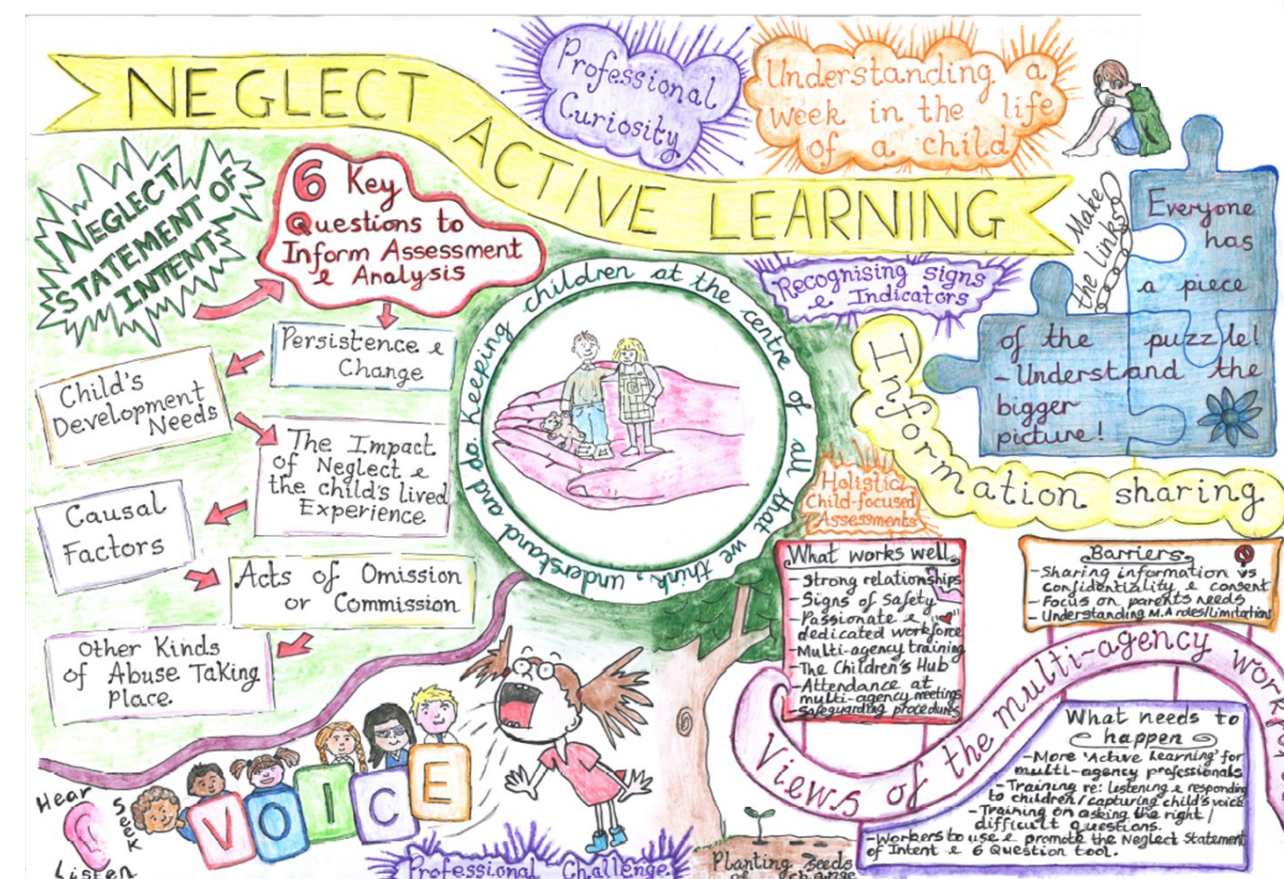 NEGLECT ACTIVE LEARNING
Professional
Curiosity
Understanding a
week in the life
of a child
NEGLECT
STATEMENT OF
INTENT
6 Key
Questions to
Inform Assessment
& Analysis
Persistence &
Change
Child's
Development
Needs
The Impact
of Neglect &
the child's lived
Experience
Causal
Factors
Acts of Omission
or Commission
Other Kinds
of Abuse Taking
Place.
Keeping children at the centre of all that we think, understand and do.
Recognising signs
& Indicators
Make
the Links
Everyone
has
a piece
of the puzzle!
- Understand the
bigger
picture!
Information sharing
Holistic
Child-focused
Assessments
What works well
- Strong relationships
- Signs of Safety
- Passionate &
dedicated workforce
- Multi-agency training
- The Children's Hub
- Attendance at
multi-agency meetings
- Safeguarding procedures
Barriers
- Sharing information vs
confidentiality & consent
- Focus on parents needs
- Understanding M.A roles/limitations
Views of the multi-agency
What needs to
happen
- More 'Active Learning' for
multi-agency professionals
- Training re: listening & responding
to children/capturing child's voice
- Training on asking the right/
difficult questions.
- Workers to use & promote the Neglect Statement
of Intent & 6 Question tool.
Hear
Seek
Listen
VOICE
Professional Challenge.
Planting Seeds
of change